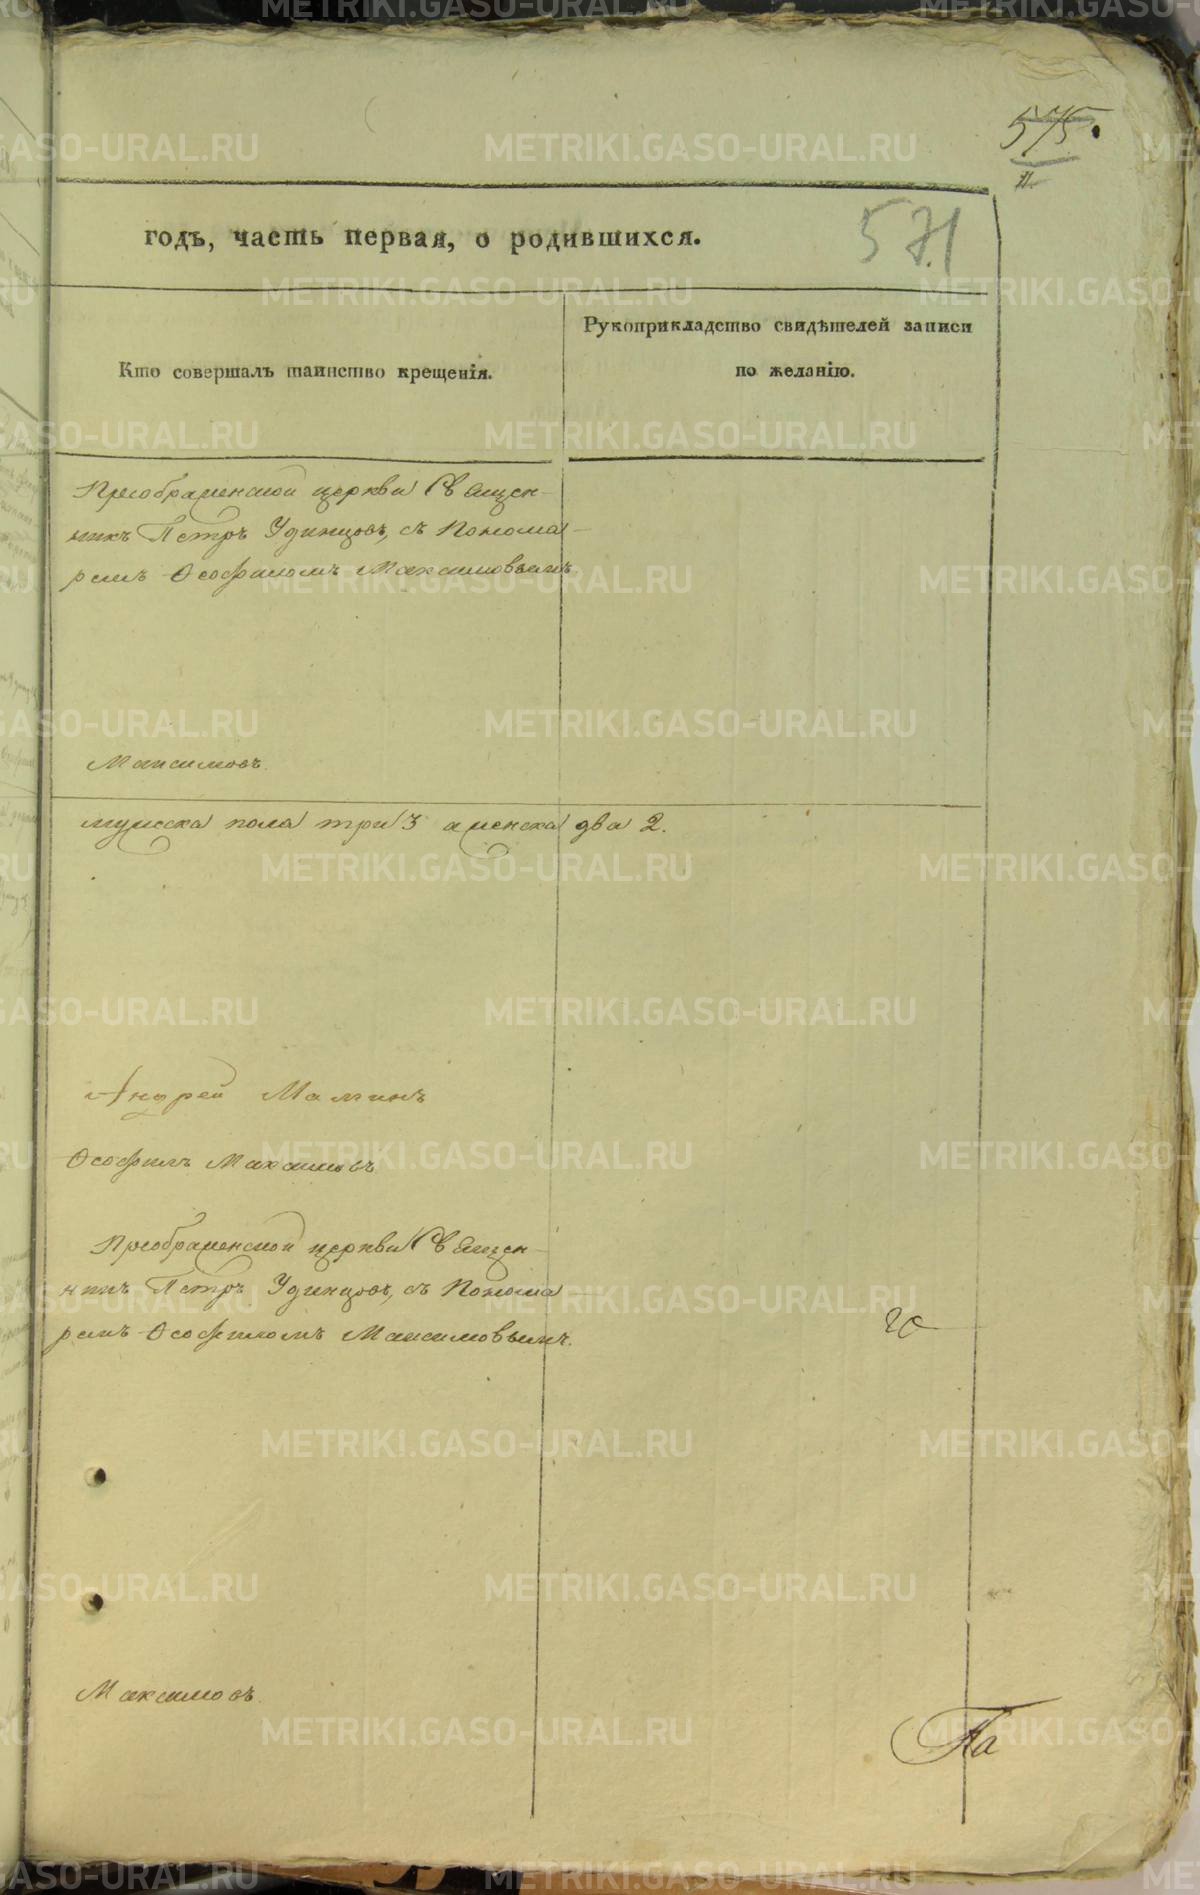 575.
571
годъ, часть первая, о родившихся.
Кто совершалъ таинство крещенія.
Рукоприкладство свидѣтелей записи
по желанію.
Преображенской церкви Священ-
никъ Петръ Удинцовъ, съ Понома-
ремъ Ѳеофиломъ Максимовымъ.
Максимовъ.
мужеска пола три 3 а женска два 2.
Андрей Маминъ
Ѳеофилъ Максимовъ
Преображенской церкви Священ-
никъ Петръ Удинцовъ, съ Понома-
ремъ Ѳеофиломъ Максимовымъ.
Максимовъ.
METRIKI.GASO-URAL.RU